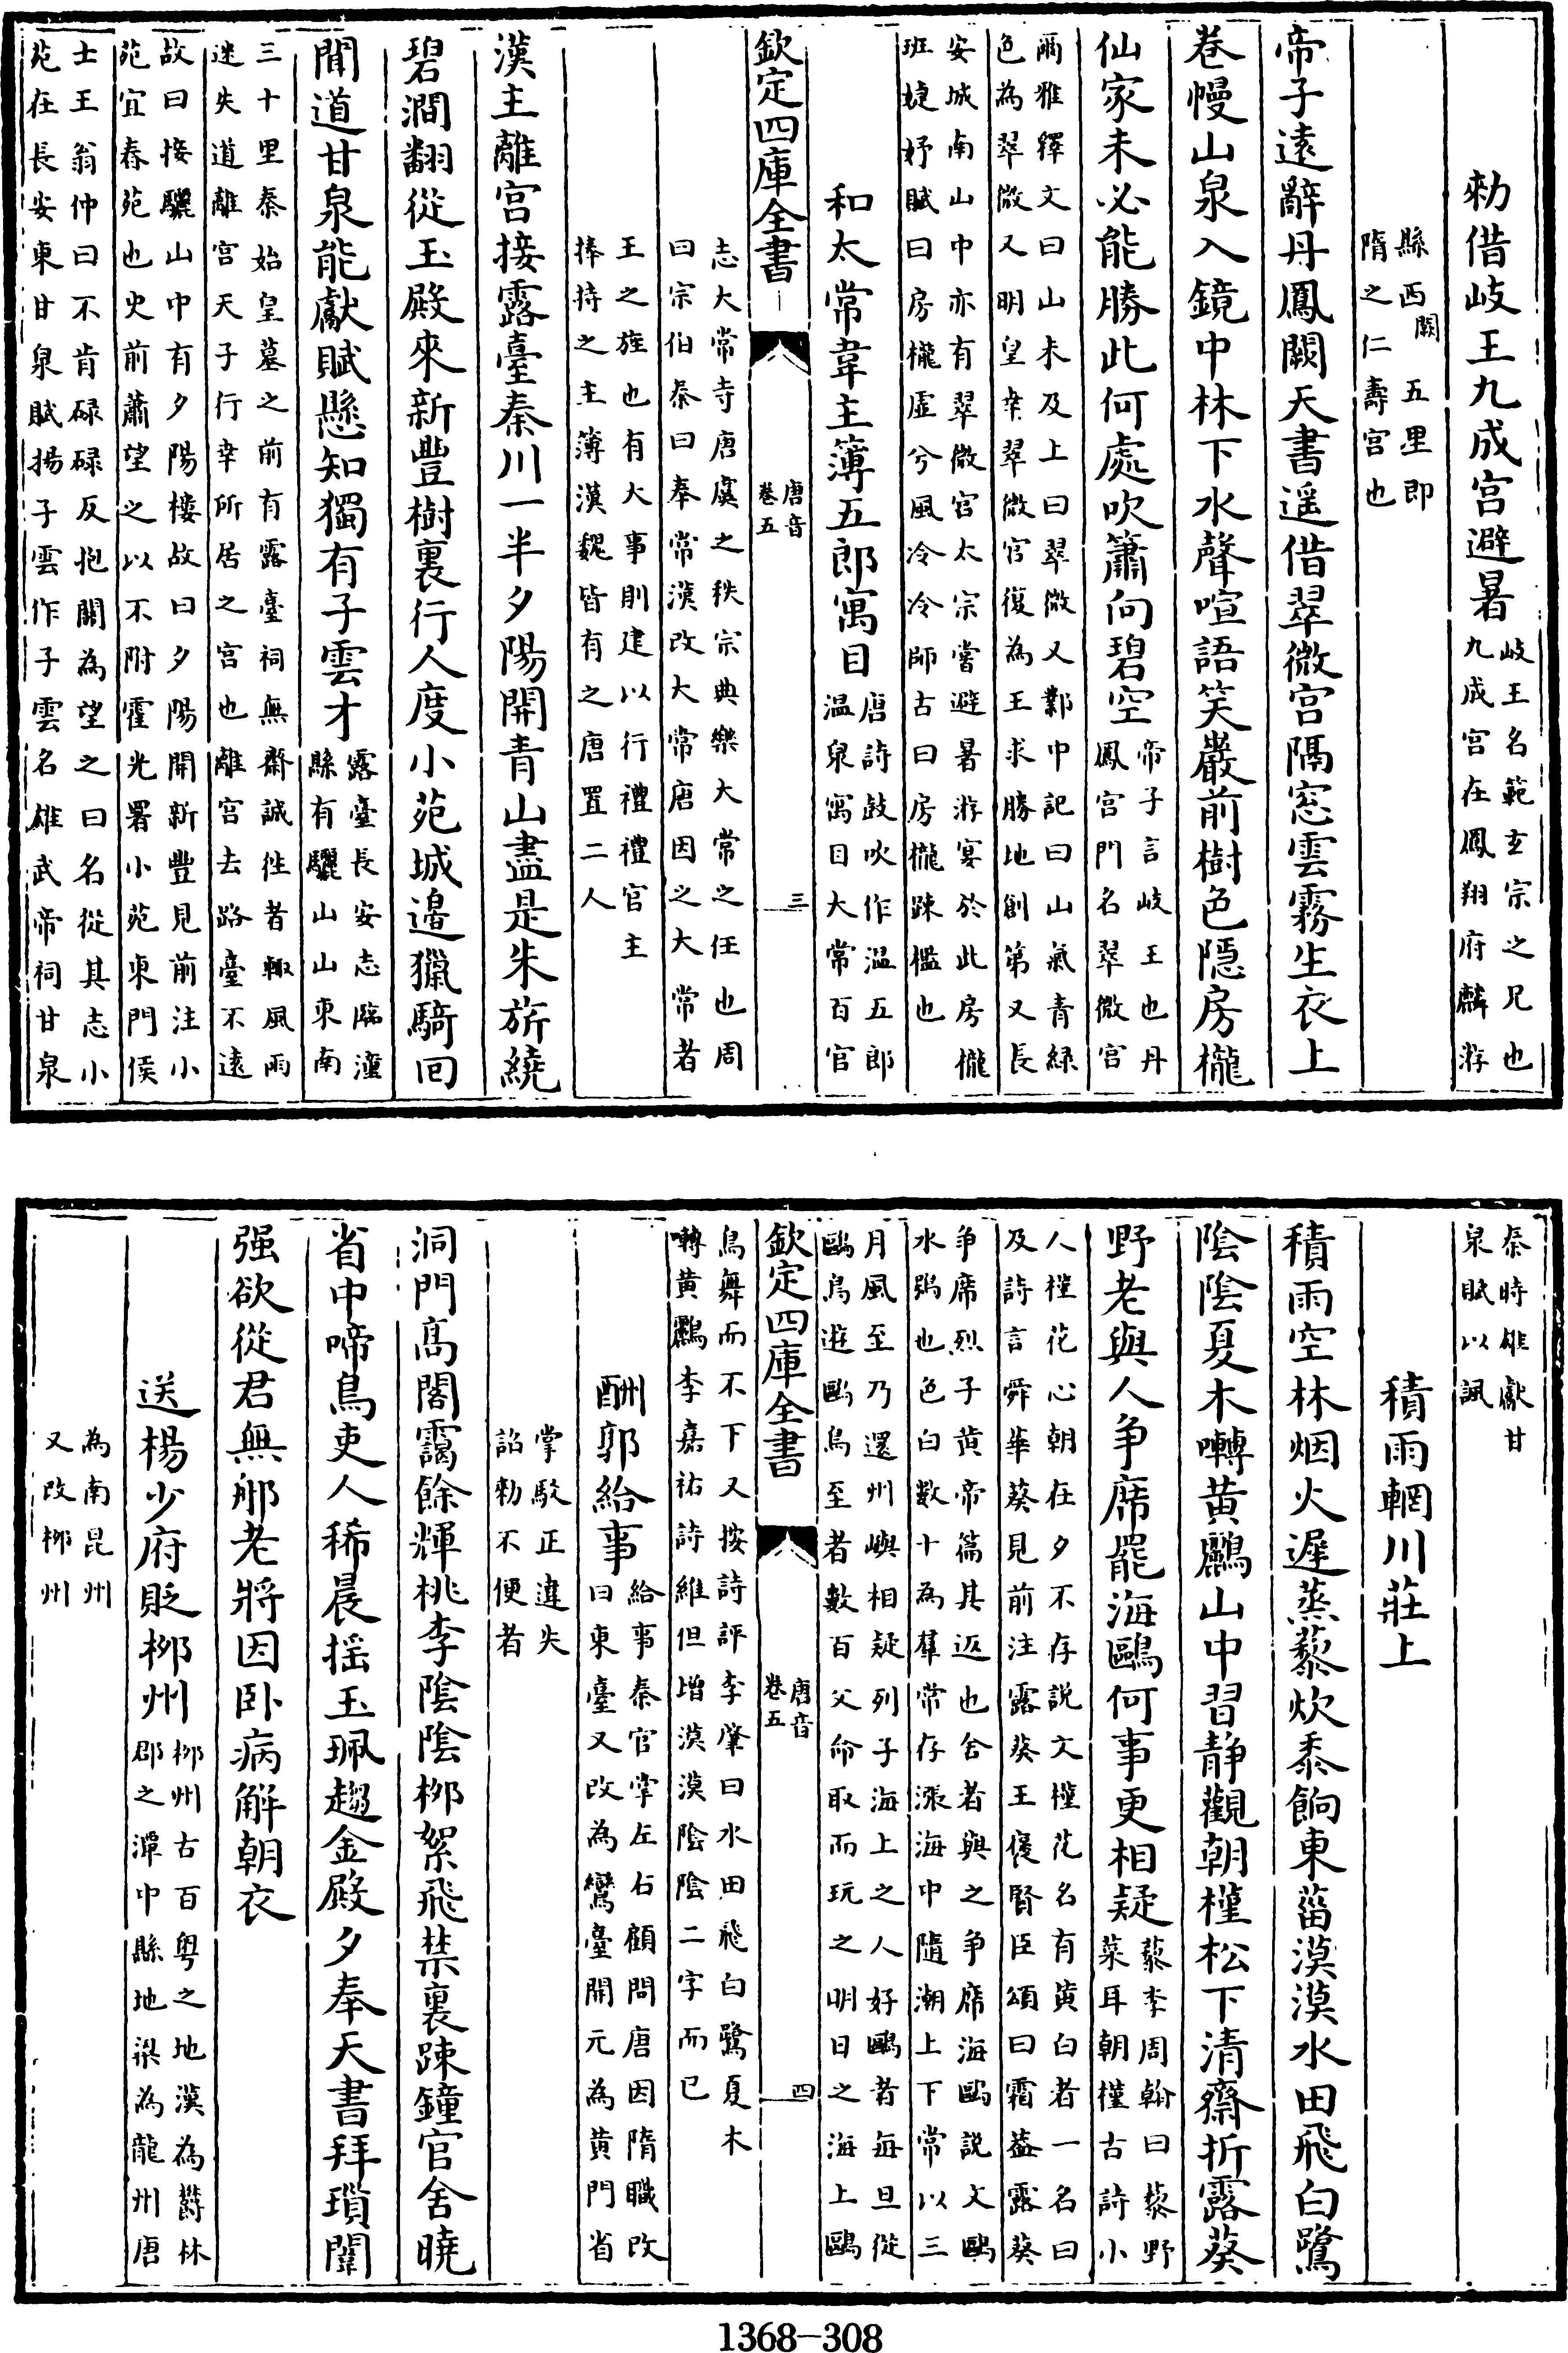 勑借岐王九成宫避暑岐王名範玄宗之兄也
九成宫在鳳翔府麟游
縣西五里即
闕
隋之仁壽宫也
帝子遠辭丹鳳闕天書遥借翠微宫隔窓雲霧生衣上
卷幔山泉入鏡中林下水聲喧語笑巖前樹色隱房櫳
仙家未必能勝此何處吹簫向碧空帝子言岐王也丹
鳳宫門名翠微宫
爾雅釋文曰山未及上曰翠微又鄴中記曰山氣青緑
色為翠微又明皇幸翠微宫復為王求勝地創第又長
安城南山中亦有翠微宫太宗嘗避暑游宴於此房櫳
班婕妤賦曰房櫳虛兮風冷冷師古曰房櫳踈檻也
和太常韋主簿五郎寓目唐詩鼓吹作温五郎
温泉寓目大常百官
欽定四庫全書
唐音
卷五
三
志大常寺唐虞之秩宗典樂大常之任也周
曰宗伯秦曰奉常漢改大常唐因之大常者
王之旌也有大事則建以行禮禮官主
捧持之主簿漢魏皆有之唐置二人
漢主離宫接露臺秦川一半夕陽開青山盡是朱旂繞
碧澗翻從玉殿來新豐樹裏行人度小苑城邉獵騎回
聞道甘泉能獻賦懸知獨有子雲才露臺長安志臨潼
縣有驪山山東南
三十里秦始皇墓之前有露臺祠無齋誠徃者輙風雨
迷失道離宫天子行幸所居之宫也離宫去路臺不遠
故曰接驪山中有夕陽樓故曰夕陽開新豐見前注小
苑宜春苑也史前蕭望之以不附霍光署小苑東門侯
士王翁仲曰不肯碌碌反抱關為望之曰名從其志小
苑在長安東甘泉賦揚子雲作子雲名雄武帝祠甘泉
秦時雄獻甘
泉賦以諷
積雨輞川莊上
積雨空林烟火遲蒸藜炊黍餉東菑漠漠水田飛白鷺
陰陰夏木囀黄鸝山中習静觀朝槿松下清齋折露葵
野老與人争席罷海鷗何事更相疑藜李周翰曰藜野
菜耳朝槿古詩小
人槿花心朝在夕不存説文槿花名有黄白者一名曰
及詩言舜華葵見前注露葵王襃賢臣頌曰霜葢露葵
争席烈子黄帝篇其返也舍者與之争席海鷗説文鷗
水鴞也色白數十為羣常存漲海中隨潮上下常以三
月風至乃還州嶼相疑列子海上之人好鷗者每旦從
鷗鳥遊鷗鳥至者數百父命取而玩之明日之海上鷗
欽定四庫全書
唐音
卷五
四
鳥舞而不下又按詩評李肇曰水田飛白鷺夏木
囀黄鸝李嘉祐詩維但增漠漠陰陰二字而已
酬郭給事給事秦官掌左右顧問唐因隋職改
曰東臺又改為鸞臺開元為黄門省
掌駮正違失
詔勑不便者
洞門髙閣靄餘輝桃李陰陰栁絮飛禁裏踈鐘官舍曉
省中啼鳥吏人稀晨摇玉珮趨金殿夕奉天書拜瑣闈
强欲從君無那老將因卧病解朝衣
送楊少府貶栁州栁州古百粤之地漢為欝林
郡之潭中縣地梁為龍州唐
為南昆州
又改栁州
1368-308